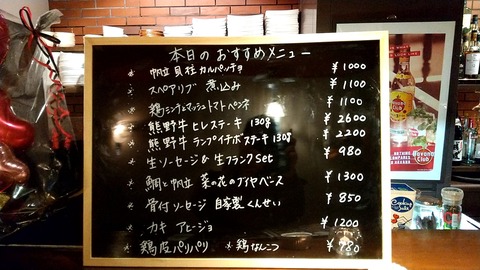 本日のおすすめメニュー
* 帆立貝柱カルパッチョ ¥1000
* スペアリブ 煮込み ¥1100
* 鶏ミンチとマッシュトマトペンネ ¥1100
* 熊野牛ヒレステーキ 130g ¥2600
* 熊野牛 ランプイチボステーキ 130g ¥2200
* 生ソーセージ & 生フランクSet ¥980
* 鯛と帆立 菜の花のブイヤベース ¥1300
* 骨付ソーセージ 自家製くんせい ¥850
* カキ アヒージョ ¥1200
* 鶏皮パリパリ *鶏なんこつ ¥780
NOTHING
COMPARES TO
HAVANA
Havana
Club
Cooking
Salt